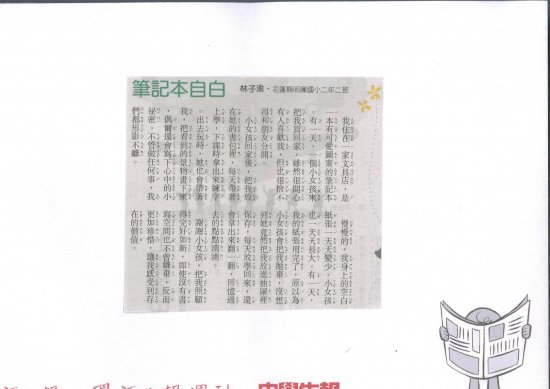 筆記本自白
林子渝‧花蓮縣明廉國小二年二班
我住在一家文具店，是
一本有可愛圖案的筆記本
。有一天，一個小女孩來
把我買回家。雖然很開心
有人喜歡我，但也很捨不
得和朋友分開。
小女孩回家後，把我放
在她的書包裡，每天帶著
上學，下課時拿出來練字
。出去玩時，她也會帶著
我，把看到的景物畫下來
，偶爾還會寫下心中的小
祕密。不管做任何事，我
們都形影不離。
慢慢的，我身上的空白
紙張一天天變少，小女孩
也一天天長大。有一天，
我的紙張用完了，原以為
小女孩會把我拋棄，沒想
到她竟然把我放進抽屜裡
保存，每天放學回來，還
會拿出來翻一翻，回憶過
去的點點滴滴。
謝謝小女孩，把我照顧
得完好如新，即使沒有書
寫空間也不曾嫌棄，反而
更加珍惜，讓我感受到存
在的價值。